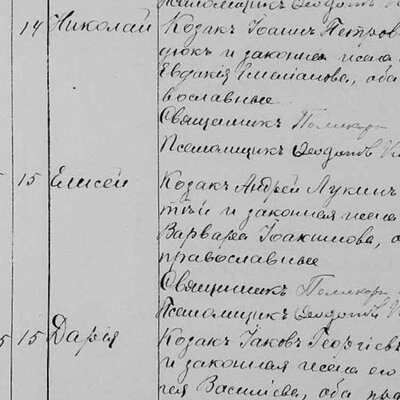 Псаломщикъ Ѳеодотъ
14 Николай Козакъ Іоаннъ Петров
дюкъ и законная жена
Евдокія Емеліанова, оба
вославные
Священникъ Поликарп
Псаломщикъ Ѳеодотъ
15 Елисей Козакъ Андрей Лукинъ
тѣй и законная жена
Варвара Іоакимова, о
православные
Священникъ Поликарп
Псаломщикъ Ѳеодотъ
5 15 Дарія Козакъ Іаковъ Георгіев
и законная жена его
Василіева, оба пра